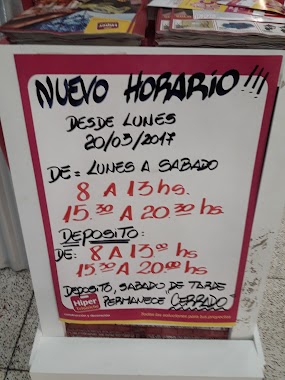 NUEVO HORARIO!!!
DESDE LUNES
20/03/2017
DE = LUNES A SABADO
8 A 13 hs.
15.30 A 20.30 hs
DEPOSITO:
DE: 8 A 13.00 hs
15.30 A 20.00 hs
DEPOSITO, SABADO DE TARDE
PERMANECE "CERRADO"
Hiper